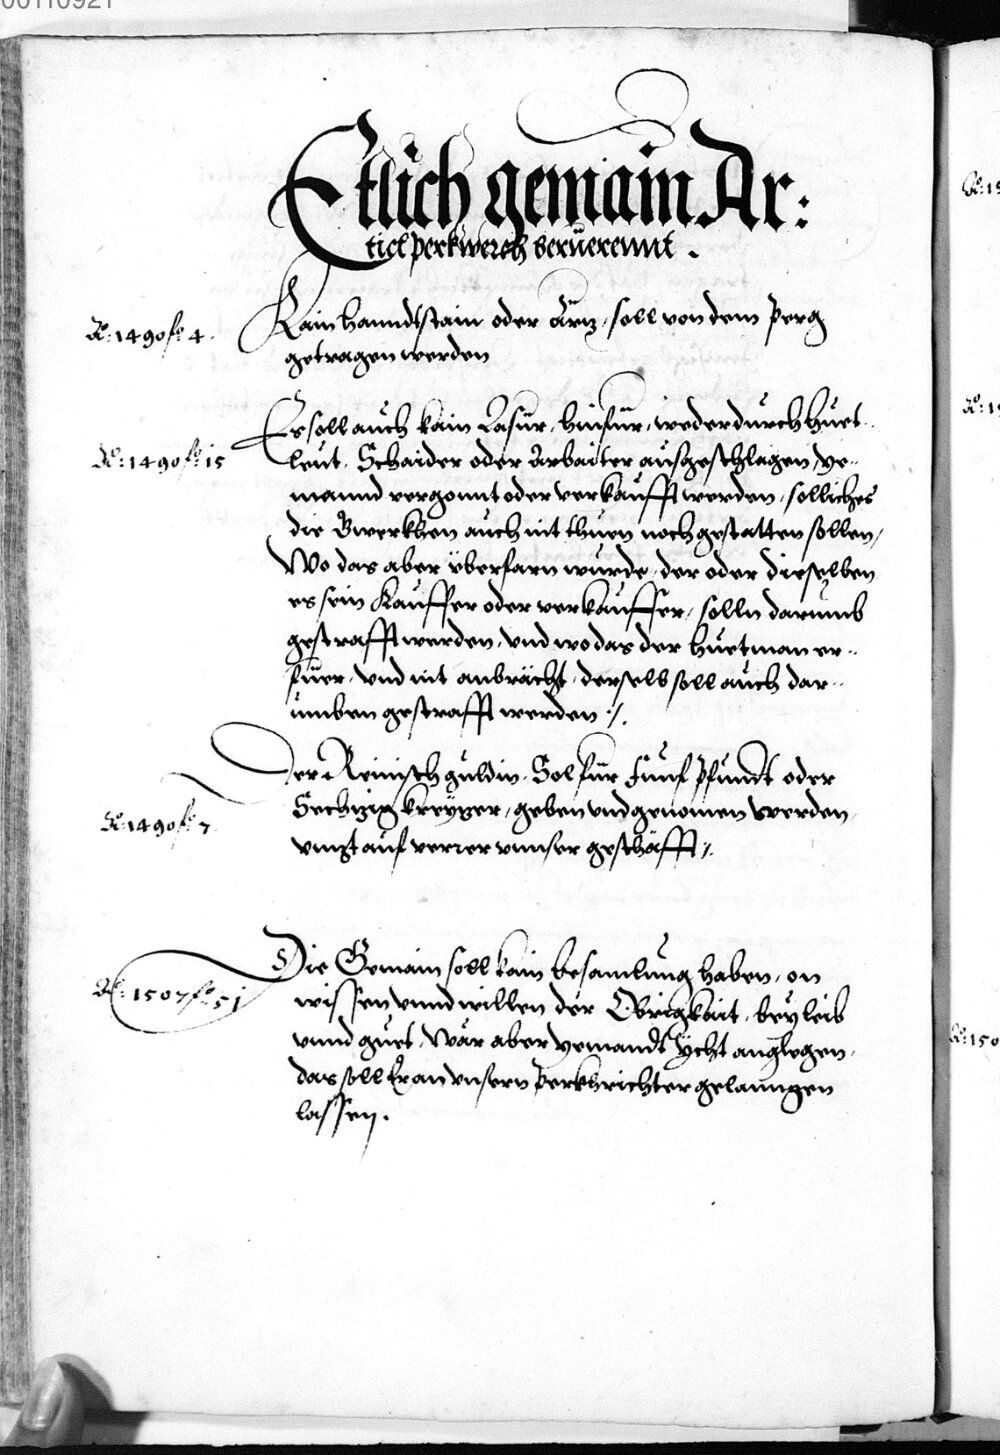 00110921
Etlich gemain Ar:
ticl perkwerch beruerennt .
A: 1490 fo: 4 .
Kain Hanndtstain oder Ärtz, soll von dem perg
getragen werden
A: 1490 fo: 15
Es soll auch kain Lasur, hinfur, weder durch Huet
leut, Schaider oder Arbaiter ausgeschlagen, ye=
mannd vergonnt oder verkaufft werden, solliches
die Gwerkhen auch nit thuen noch gestatten sollen,
Wo das aber überfarn wurde, der oder dieselben
es sein Kauffer oder verkauffer, solln darumb
gestrafft werden, vnd wo das der Huetman er=
fuer, vnd nit anbrächt, derselb soll auch dar=
umben gestrafft werden ./.
A: 1490 fo: 7
Der Reinisch guldin, Sol für Funf pfundt oder
Sechtzig kreytzer, geben vnd genomen werden,
vnnzt auf verrer vnnser geschäfft ./.
A: 1507 fo: 51
Die Gemain soll kain besamlung haben, on
wissen vnnd willen der Obrigkait, bey leib
vnnd guet, Wär aber yemandt ycht anglegen,
das soll Er an vnsern Perkhrichter gelanngen
lassen .
A: 15
A: 1
A: 150